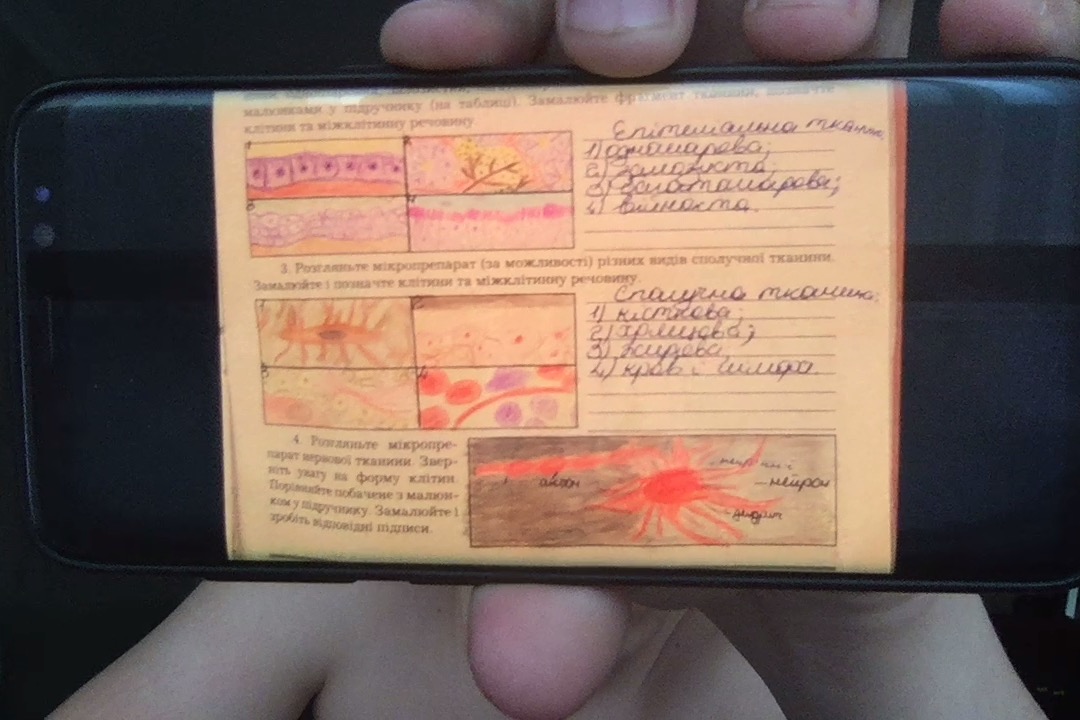 малюнками у підручнику (на таблиці). Замалюйте фрагмент тканини, позначте
клітини та міжклітинну речовину.
1
2
3
4
Епітеліальна тканина
1) одношарова;
2) залозиста;
3) багатошарова;
4) війчаста.
3. Розгляньте мікропрепарат (за можливості) різних видів сполучної тканини.
Замалюйте і позначте клітини та міжклітинну речовину.
1
2
3
4
Сполучна тканина;
1) кісткова;
2) хрящова;
3) жирова
4) кров і лімфа.
4. Розгляньте мікропре-
парат нервової тканини. Звер-
ніть увагу на форму клітин.
Порівняйте побачене з малюн-
ком у підручнику. Замалюйте і
зробіть відповідні підписи.
аксон
нейрон
дендрит